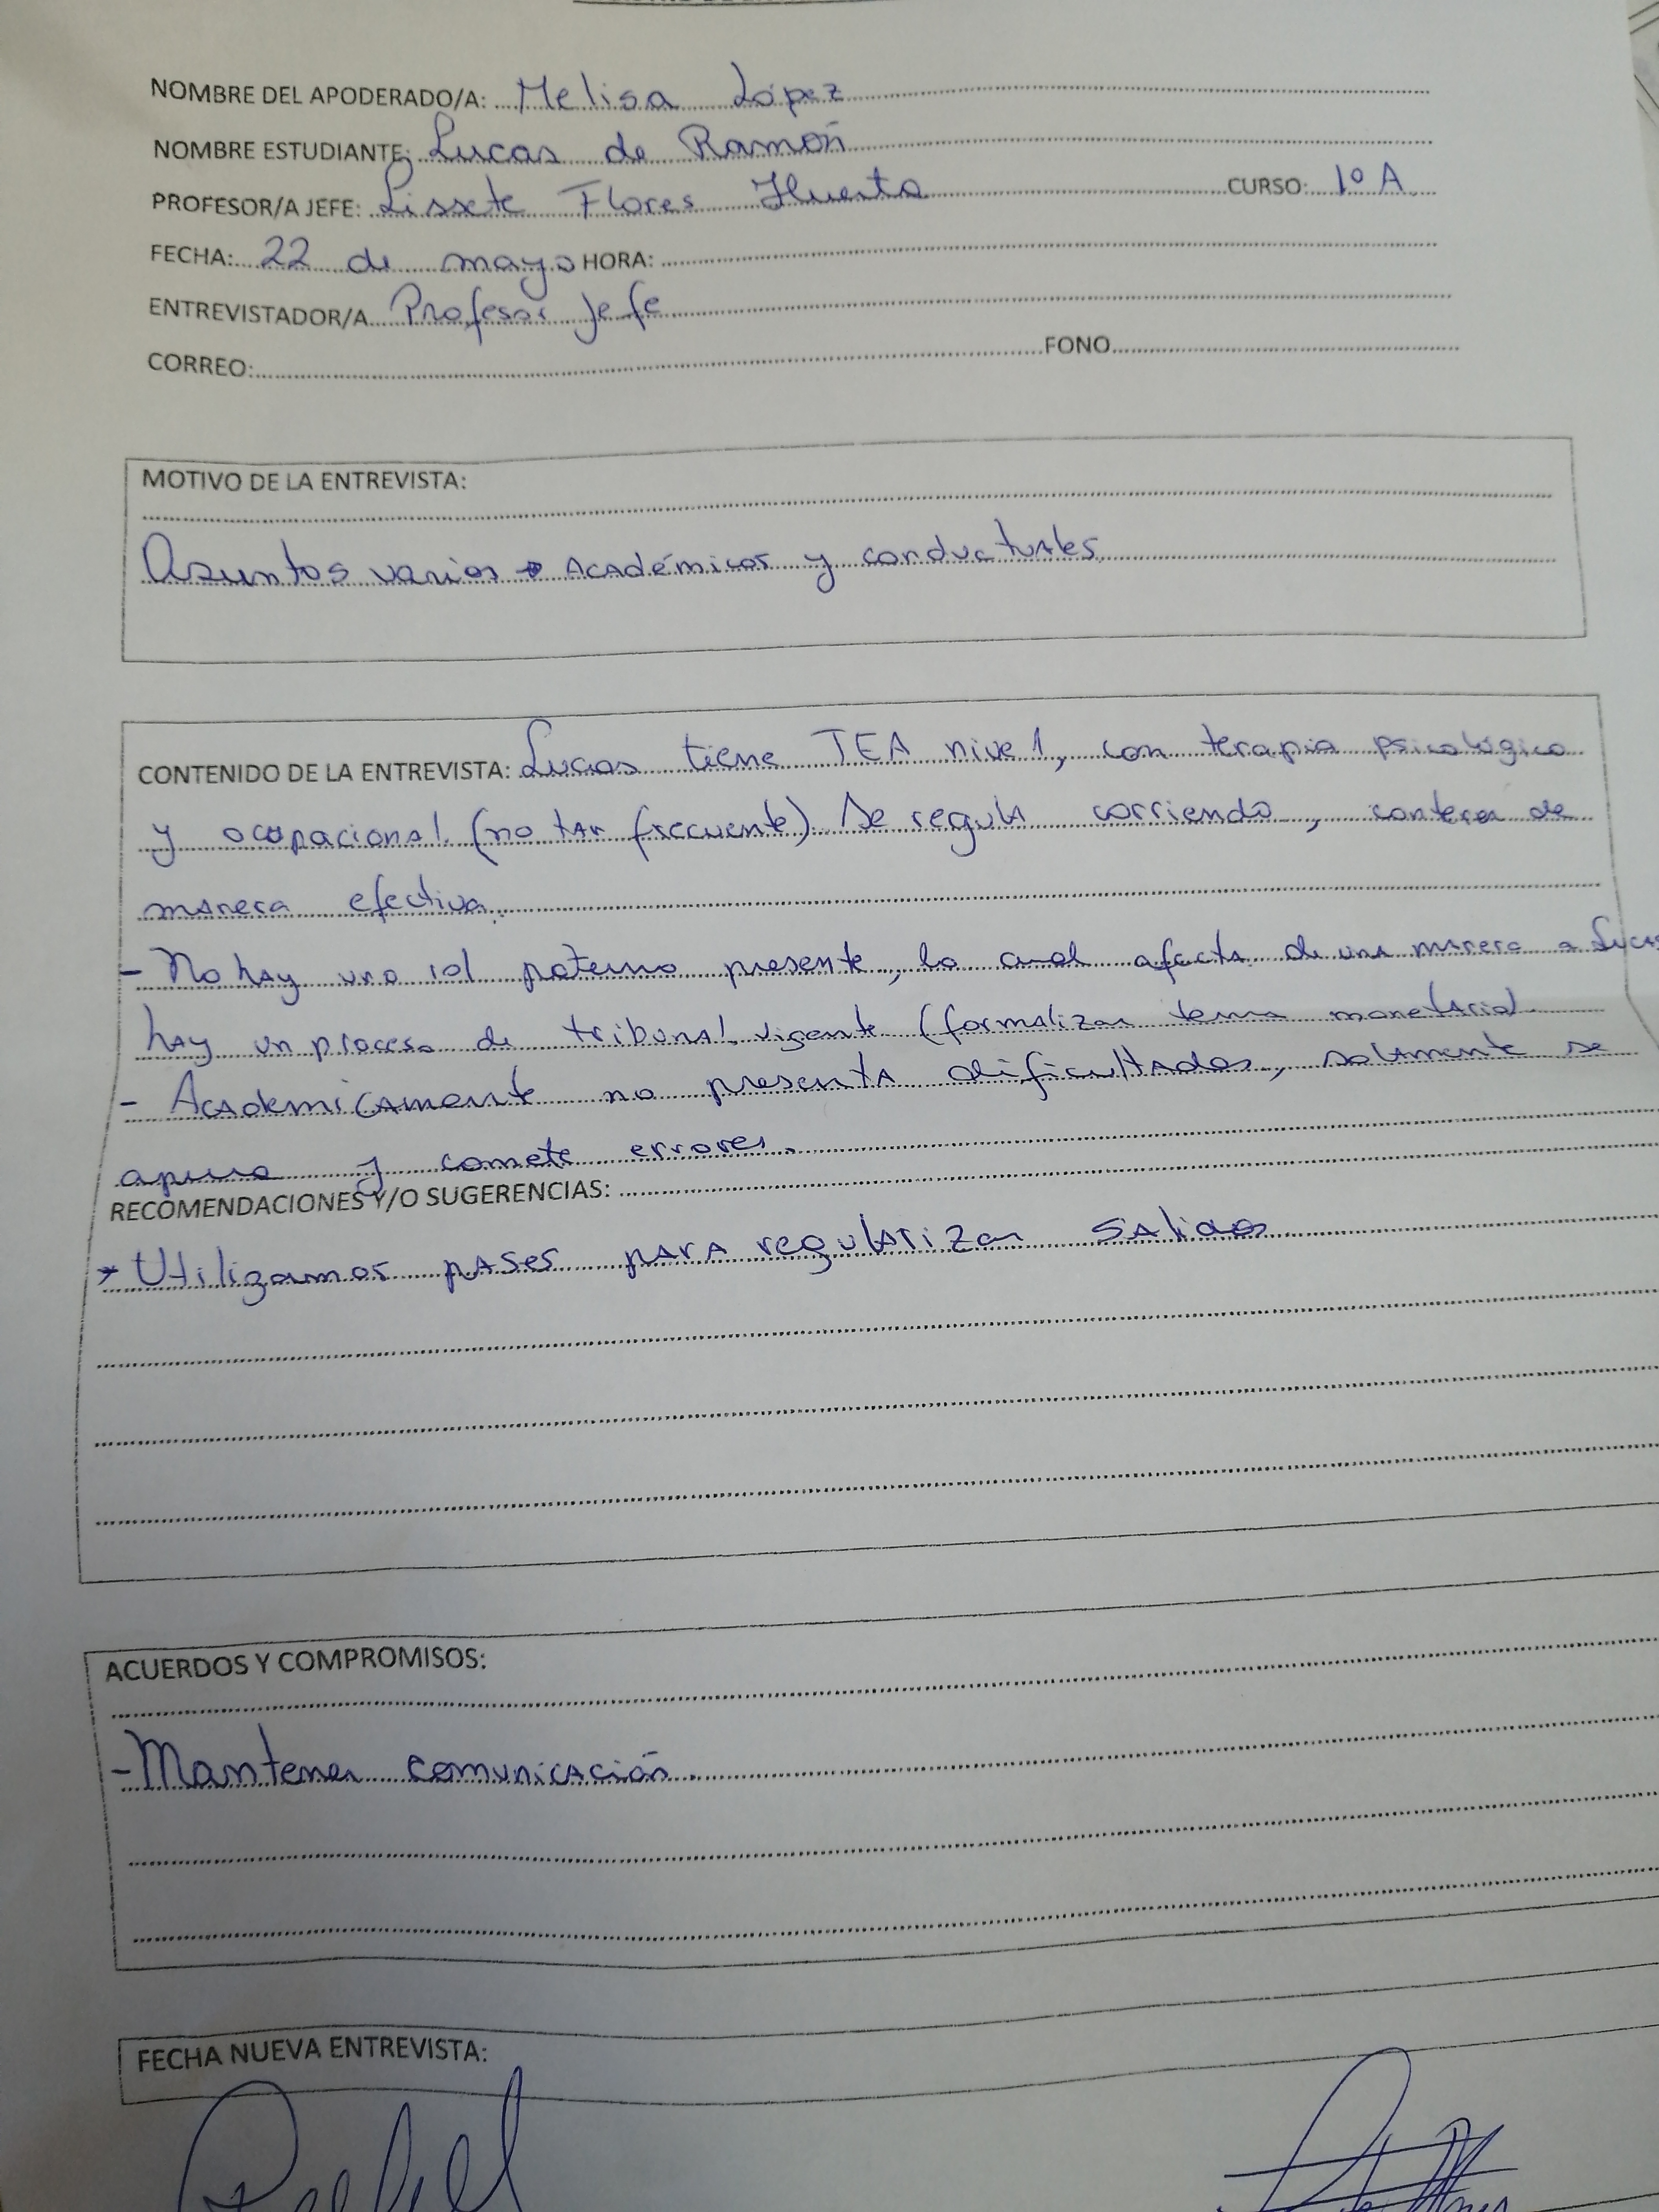 NOMBRE DEL APODERADO/A: Melisa López
NOMBRE ESTUDIANTE: Lucas de Ramón
PROFESOR/A JEFE: Lissete Flores Huerta CURSO: 1º A
FECHA: 22 de mayo HORA:
ENTREVISTADOR/A Profesor Jefe
CORREO: FONO
MOTIVO DE LA ENTREVISTA:
Asuntos varios → Académicos y conductuales
CONTENIDO DE LA ENTREVISTA: Lucas tiene TEA nivel 1, con terapia psicológica
y ocupacional (no tan frecuente). Se regula corriendo, contener de
manera efectiva.
- No hay uno rol paterno presente, lo cual afecta de una manera a Lucas
hay un proceso de tribunal vigente (formalizar tema monetario)
- Academicamente no presenta dificultades, solamente se
apura y comete errores.
RECOMENDACIONES Y/O SUGERENCIAS:
* Utilizamos pases para regularizar salidas
ACUERDOS Y COMPROMISOS:
- Mantener comunicación.
FECHA NUEVA ENTREVISTA: